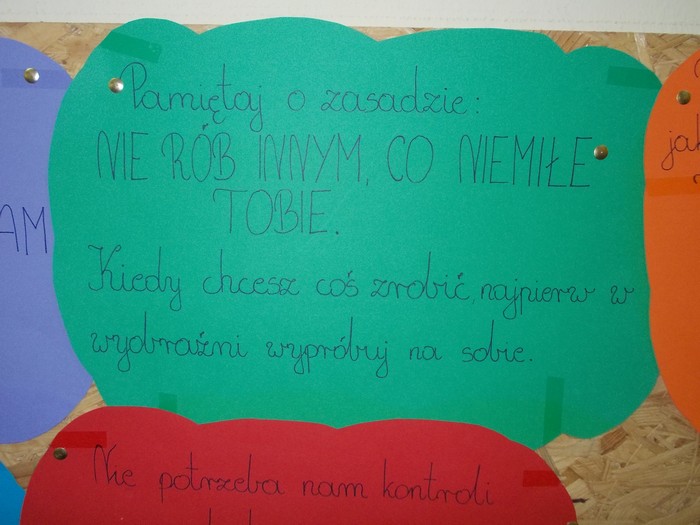 Pamiętaj o zasadzie:
NIE RÓB INNYM, CO NIEMIŁE
TOBIE.
Kiedy chcesz coś zrobić, najpierw w
wyobraźni wypróbuj na sobie.
AM
jak
Nie potrzeba nam kontroli